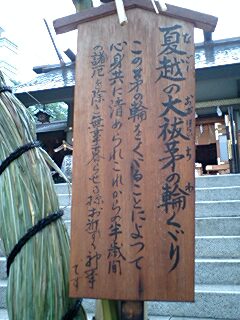 夏越の大祓茅の輪くぐり
この茅の輪をくぐることによって
心身共に清められこれからの半歳間
の諸厄を除き無事暮らせる様お祈りする神事
です